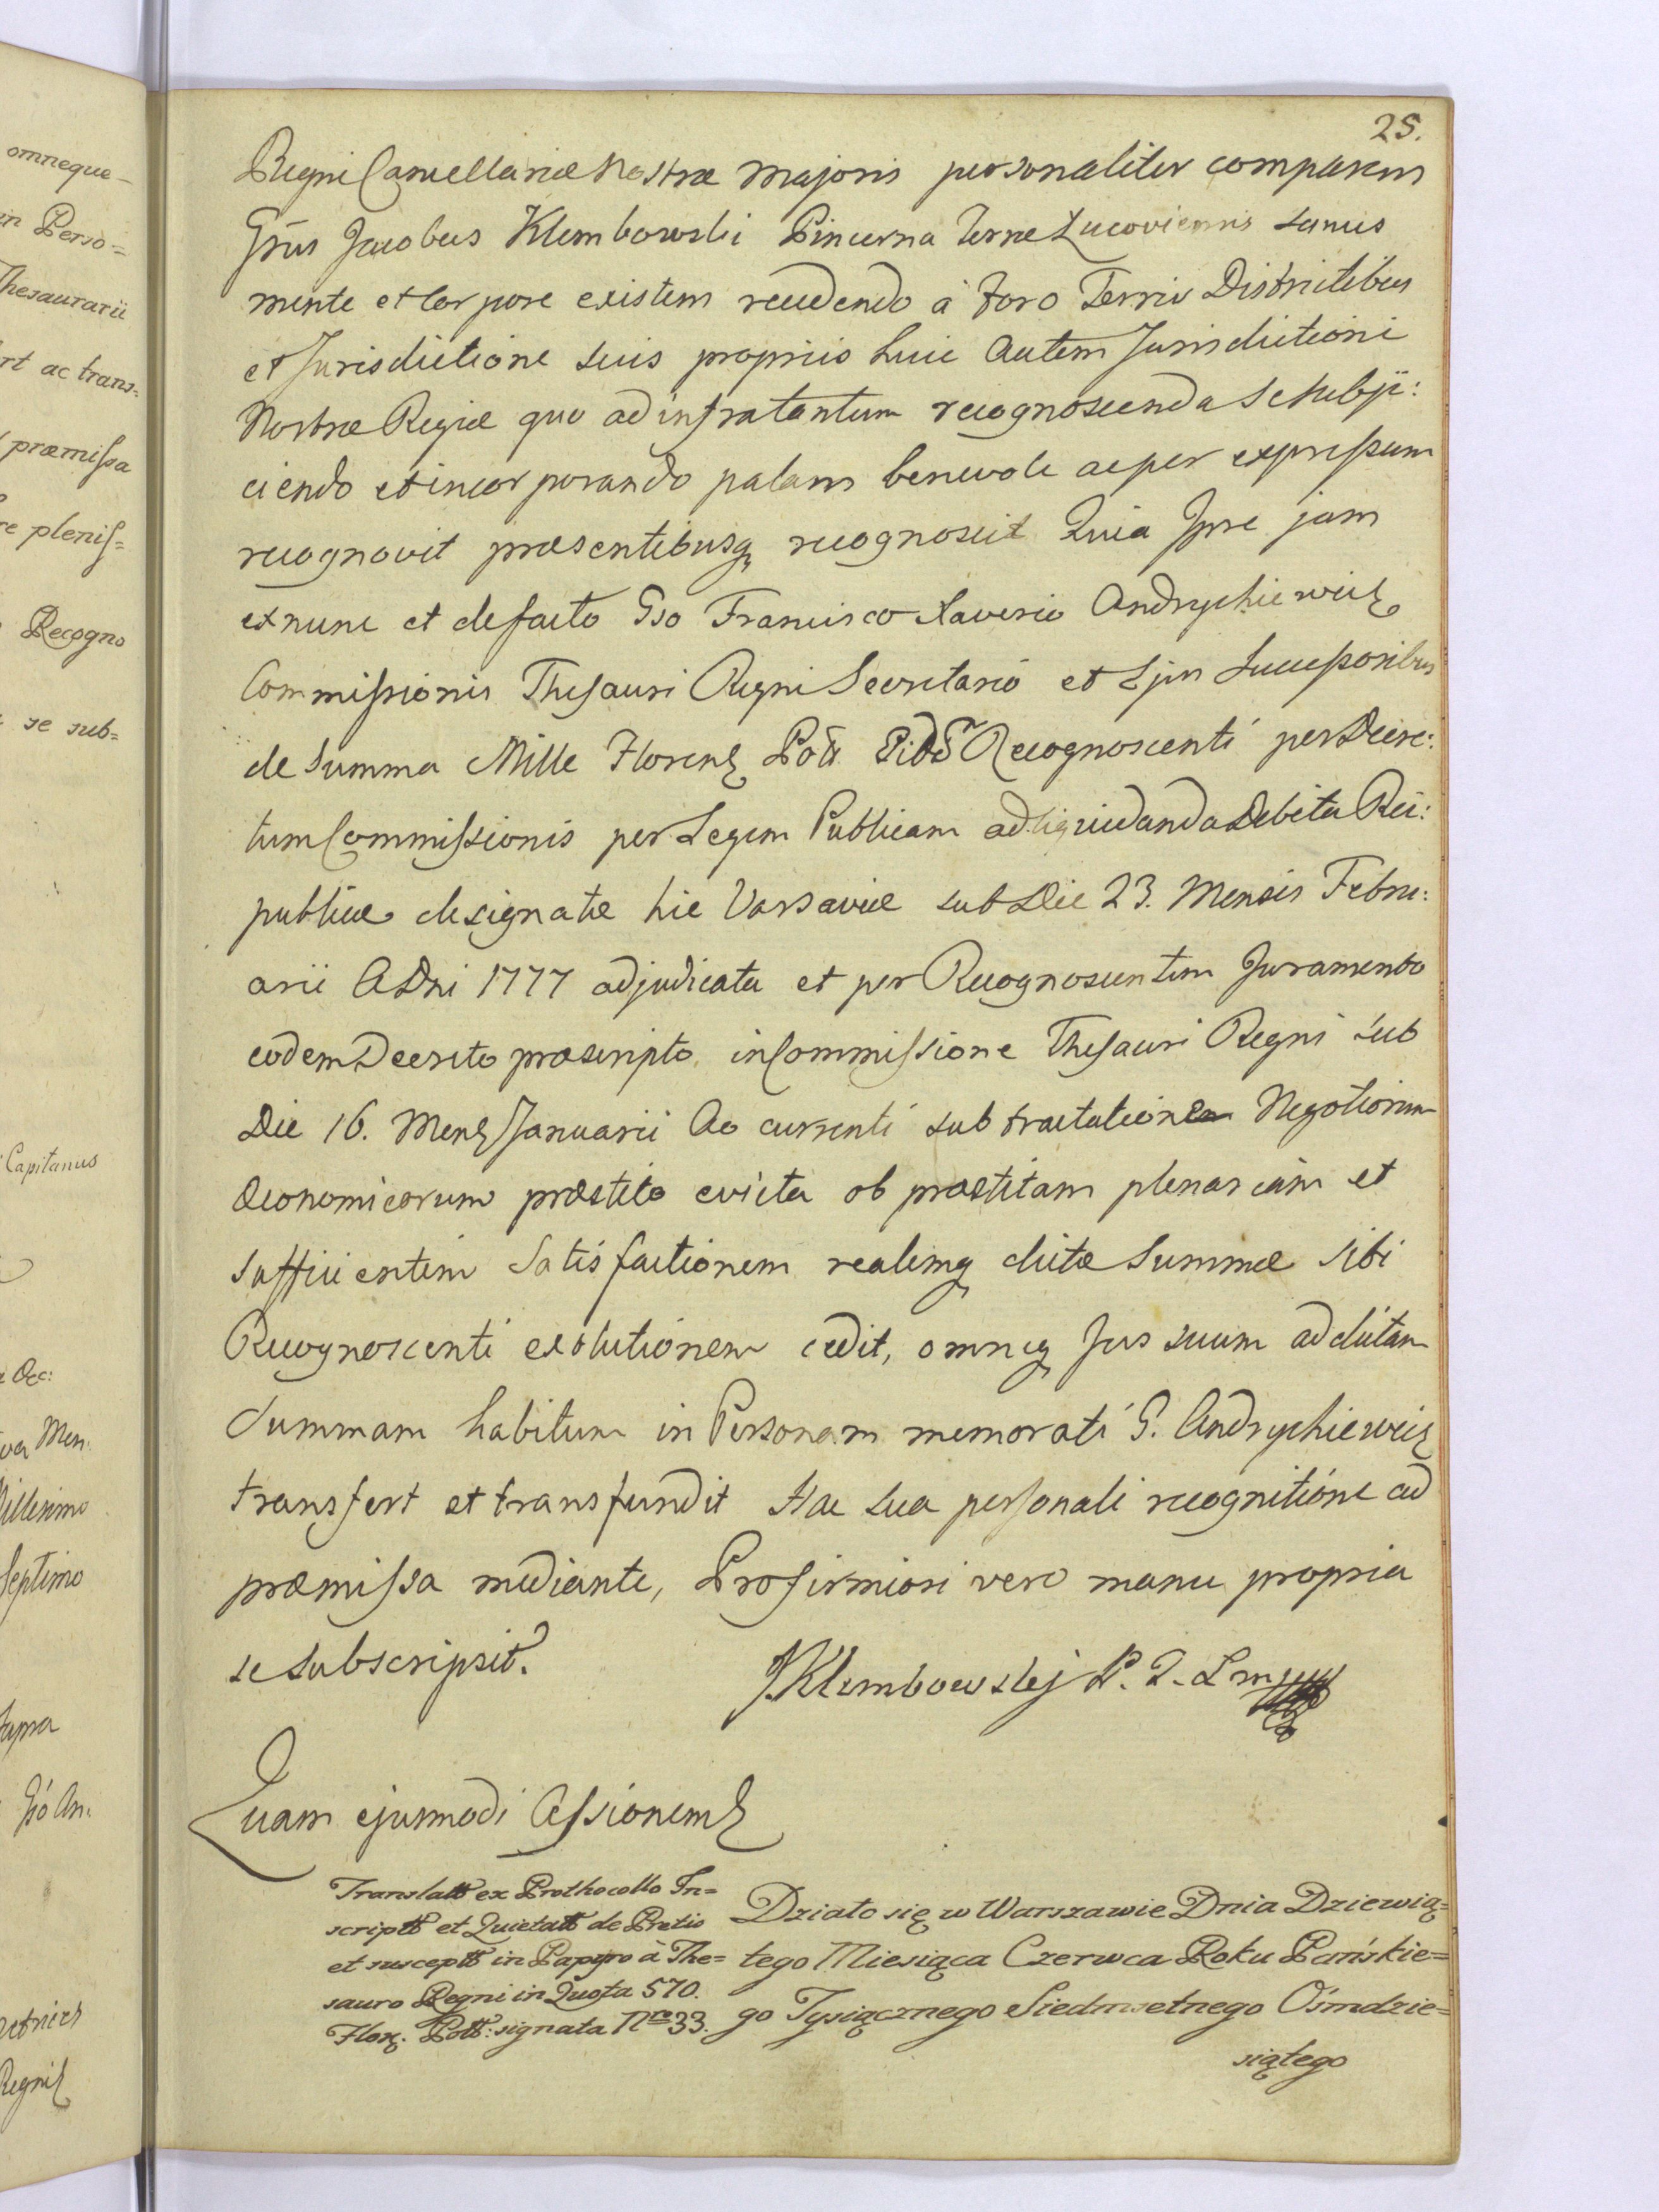 25.
Regni Cancellariæ Nostræ Majoris personaliter comparens
Gsus Jacobus Klembowski Pincerna Terræ Lucoviensis sanus
mente et Corpore existens recedendo à Foro Terris Districtibus
et Jurisdictione suis propriis huic autem Jurisdictioni
Nostræ Regiæ quo ad infratantum recognoscenda se subji:
ciendo et incorporando palam benevole ac per expressum
recognovit præsentibusq recognoscit Quia Ipse jam
ex nunc et de facto Gso Francisco Xaverio Andrychiewicz
Commissionis Thesauri Regni Secretario et Ejus Successoribus
de Summa Mille Floren Recognoscenti per Decre:
tum Commissionis per Legem Publicam ad liquidanda Debita Rei:
publicæ designatæ hic Varsaviæ sub Die 23. Mensis Febru:
arii ADni 1777 adjudicata et per Recognoscentem Juramento
eodem Decreto præscripto in Commissione Thesauri Regni sub
Die 16. Mens Januarii Ao currenti sub tractatione Negotiorum
Œconomicorum præstito evicta ob præstitam plenariam et
sufficientem Satisfactionem realemq dictæ Summæ sibi
Recognoscenti exolutionem cedit, omneq Jus suum ad dictam
Summam habitum in Personam memorati G. Andrychiewicz
transfert et transfundit Hac sua personali recognitione ad
præmissa mediante, Pro firmiori vero manu propria
se subscripsit.
JKlembowskj P. Z. Ł mp
Quam ejusmodi Cessionem
Translatt ex Prothocollo In=
scriptt et Quietatt de Pretio
et susceptt in Papyro à The=
sauro Regni in Quota 570.
Flor. Poll: signata Nro 33.
Działo się w Warszawie Dnia Dziewią=
tego Miesiąca Czerwca Roku Pańskie=
go Tysiącznego Siedmsetnego Ośmdzie=
siątego
omneque
in Perso=
Thesaurarii
rt ac trans=
præmissa
re pleniss=
Recogno
se sub=
Capitanus
Men.
Millesimo
Septimo
supra
An.
Regni